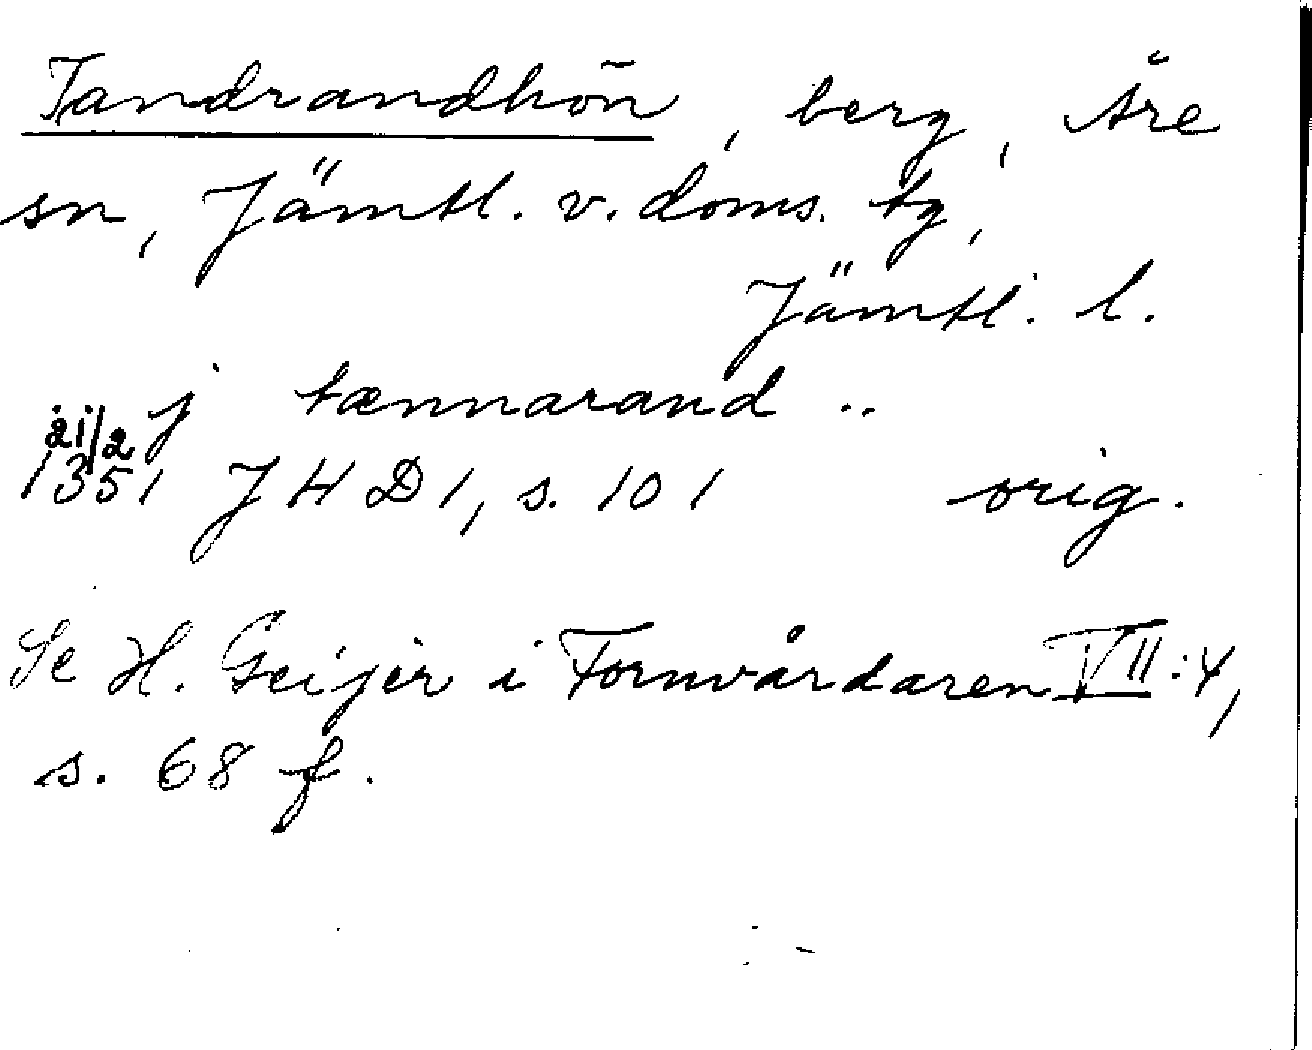 Tandrandhön, berg, Åre
sn, Jämtl. v. doms. tg,
Jämtl. l.
j tænnarand ..
21/2
1351 JHD 1, s. 101 orig.
Se H. Geijer i Fornvårdaren VII:4,
s. 68 f.